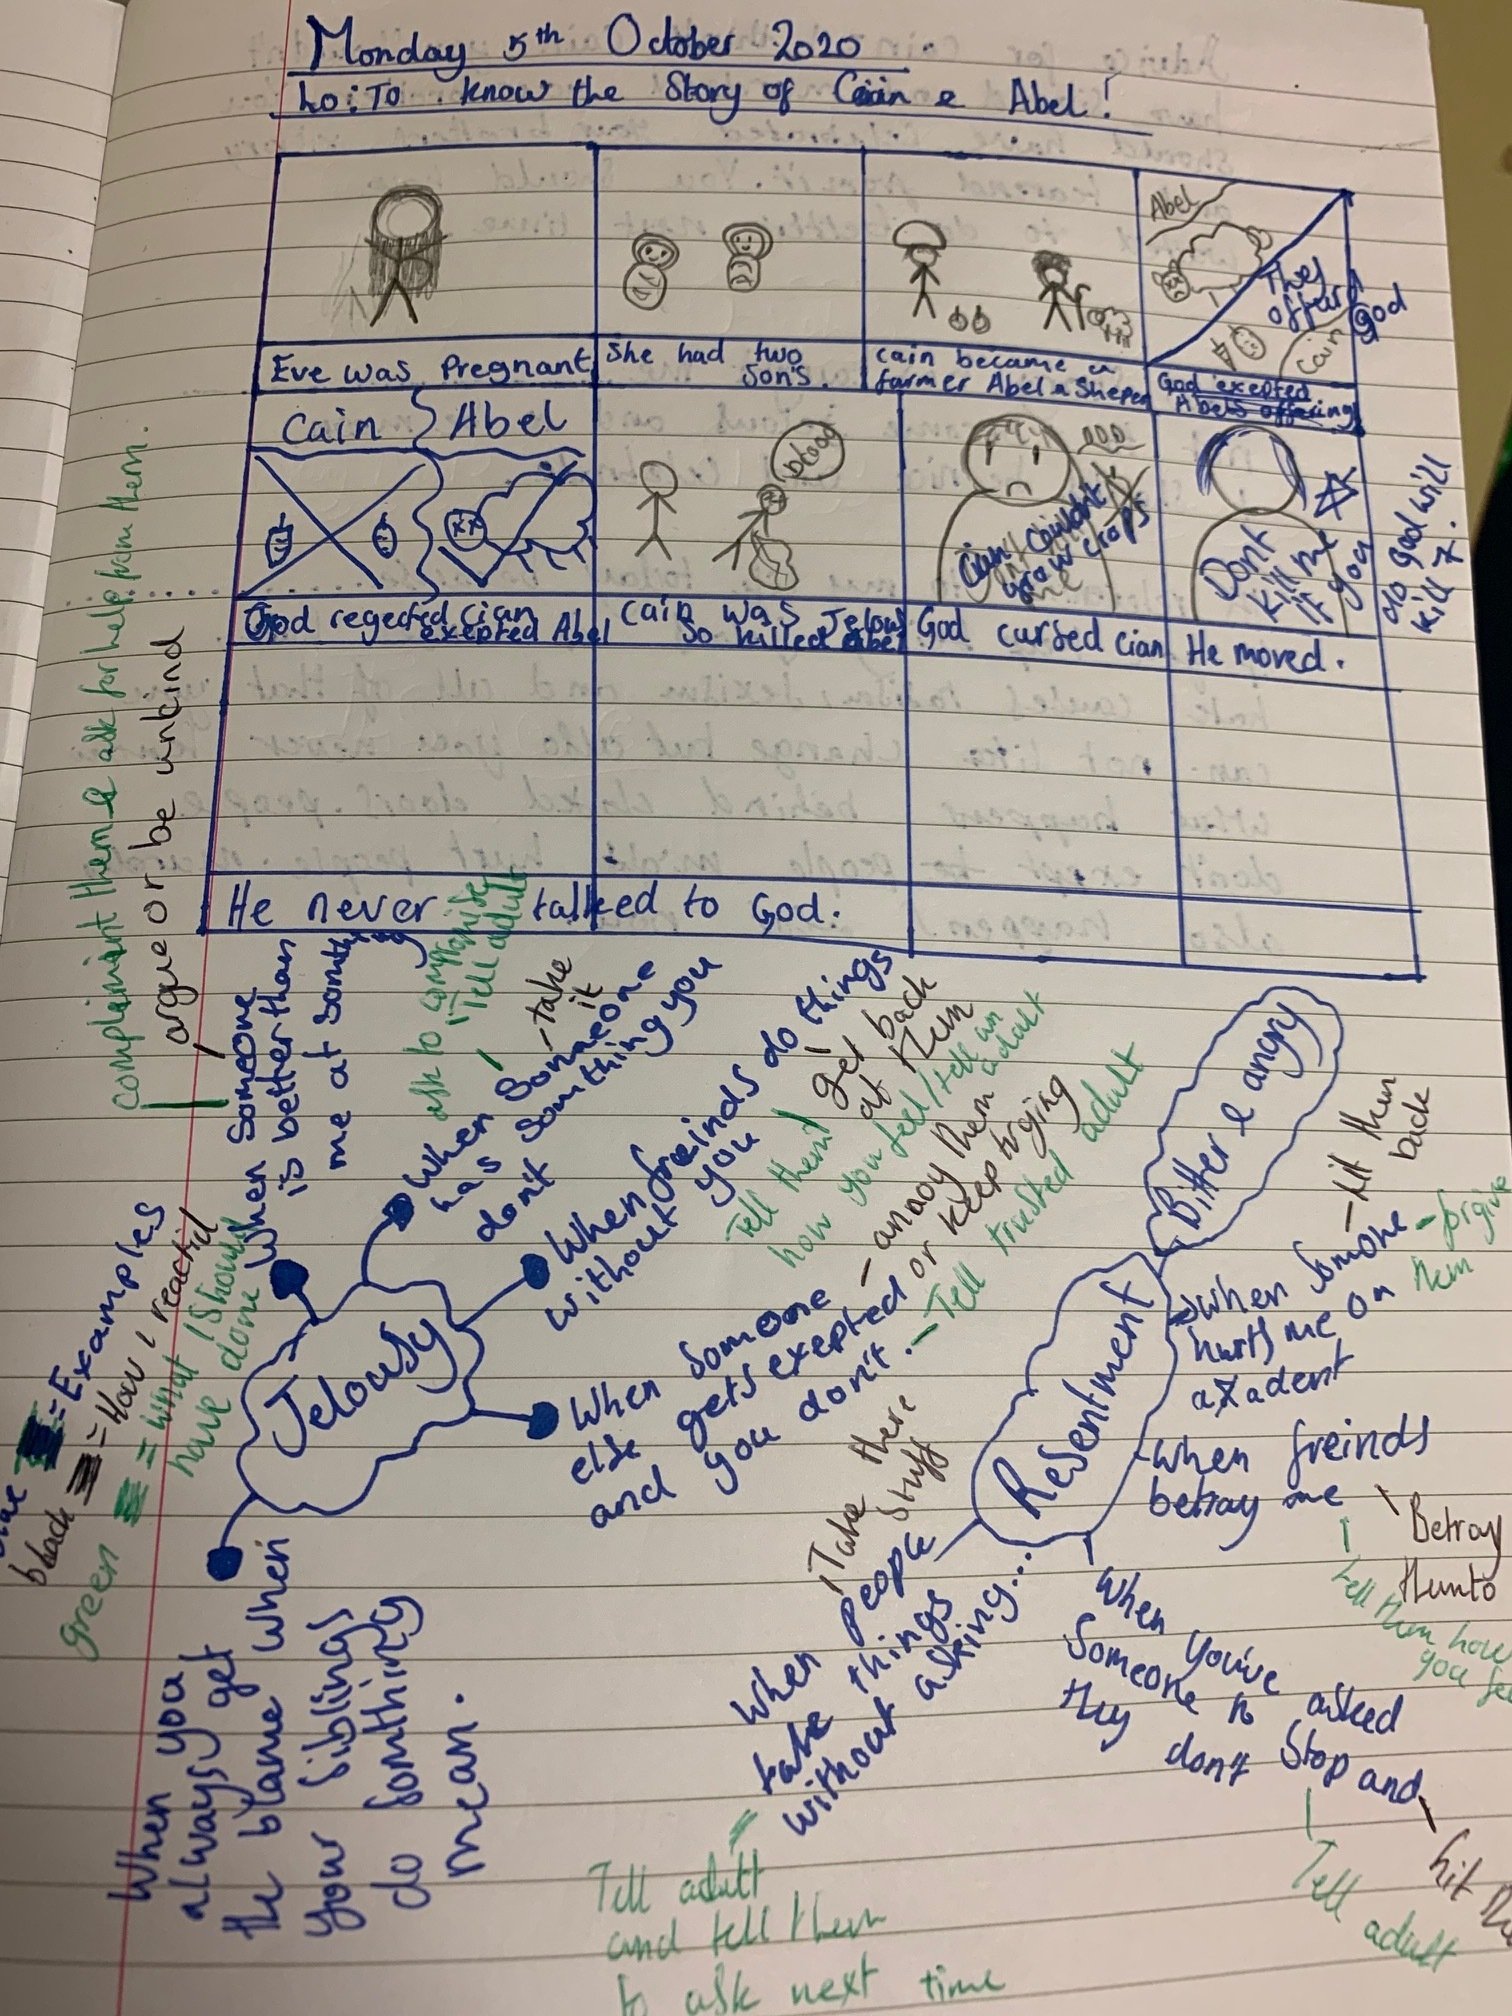 Monday 5th October 2020
Lo: To know the Story of Cain & Abel!
Abel
They
offerd
God
Cain
Eve was Pregnant
She had two
Son's.
Cain became a
farmer Abel a Sheper
God exepted
Abels offering
Cain
Abel
blood
Cian Couldn't
grow crops
Dont
Kill me
if you
do god will
kill 7.
God regected Cian
exepted Abel
Cain was Jelous
So killed Abel
God cursed Cian
He moved.
He never talked to God.
compleimint them & ask for help from them.
argue or be unkind
When Someone
is better than
me at somthing
ask to
Tell adult
- take
it
When Someone
has Something you
don't
When freinds do things
without you
get back
at them
Tell them
how you feel/tell an
adult
When Someone
else gets exepted
and you don't.
- annoy them
or keep trying
- Tell trusted adult
Jelousy
= Examples
black = How I reacted
green = what I Should
have done
When you
always get
the blame when
your siblings
do Somthing
mean.
Bitter & angry
Resentment
When Somone
hurts me on
axadent
- hit them
back
- forgive
them
When freinds
betray me
Betray
them to
tell them how
you
When You've asked
Someone to Stop and
they don't
hit
Tell adult
Take there
Stuff
When people
take things
without asking...
Tell adult
and tell them
to ask next time